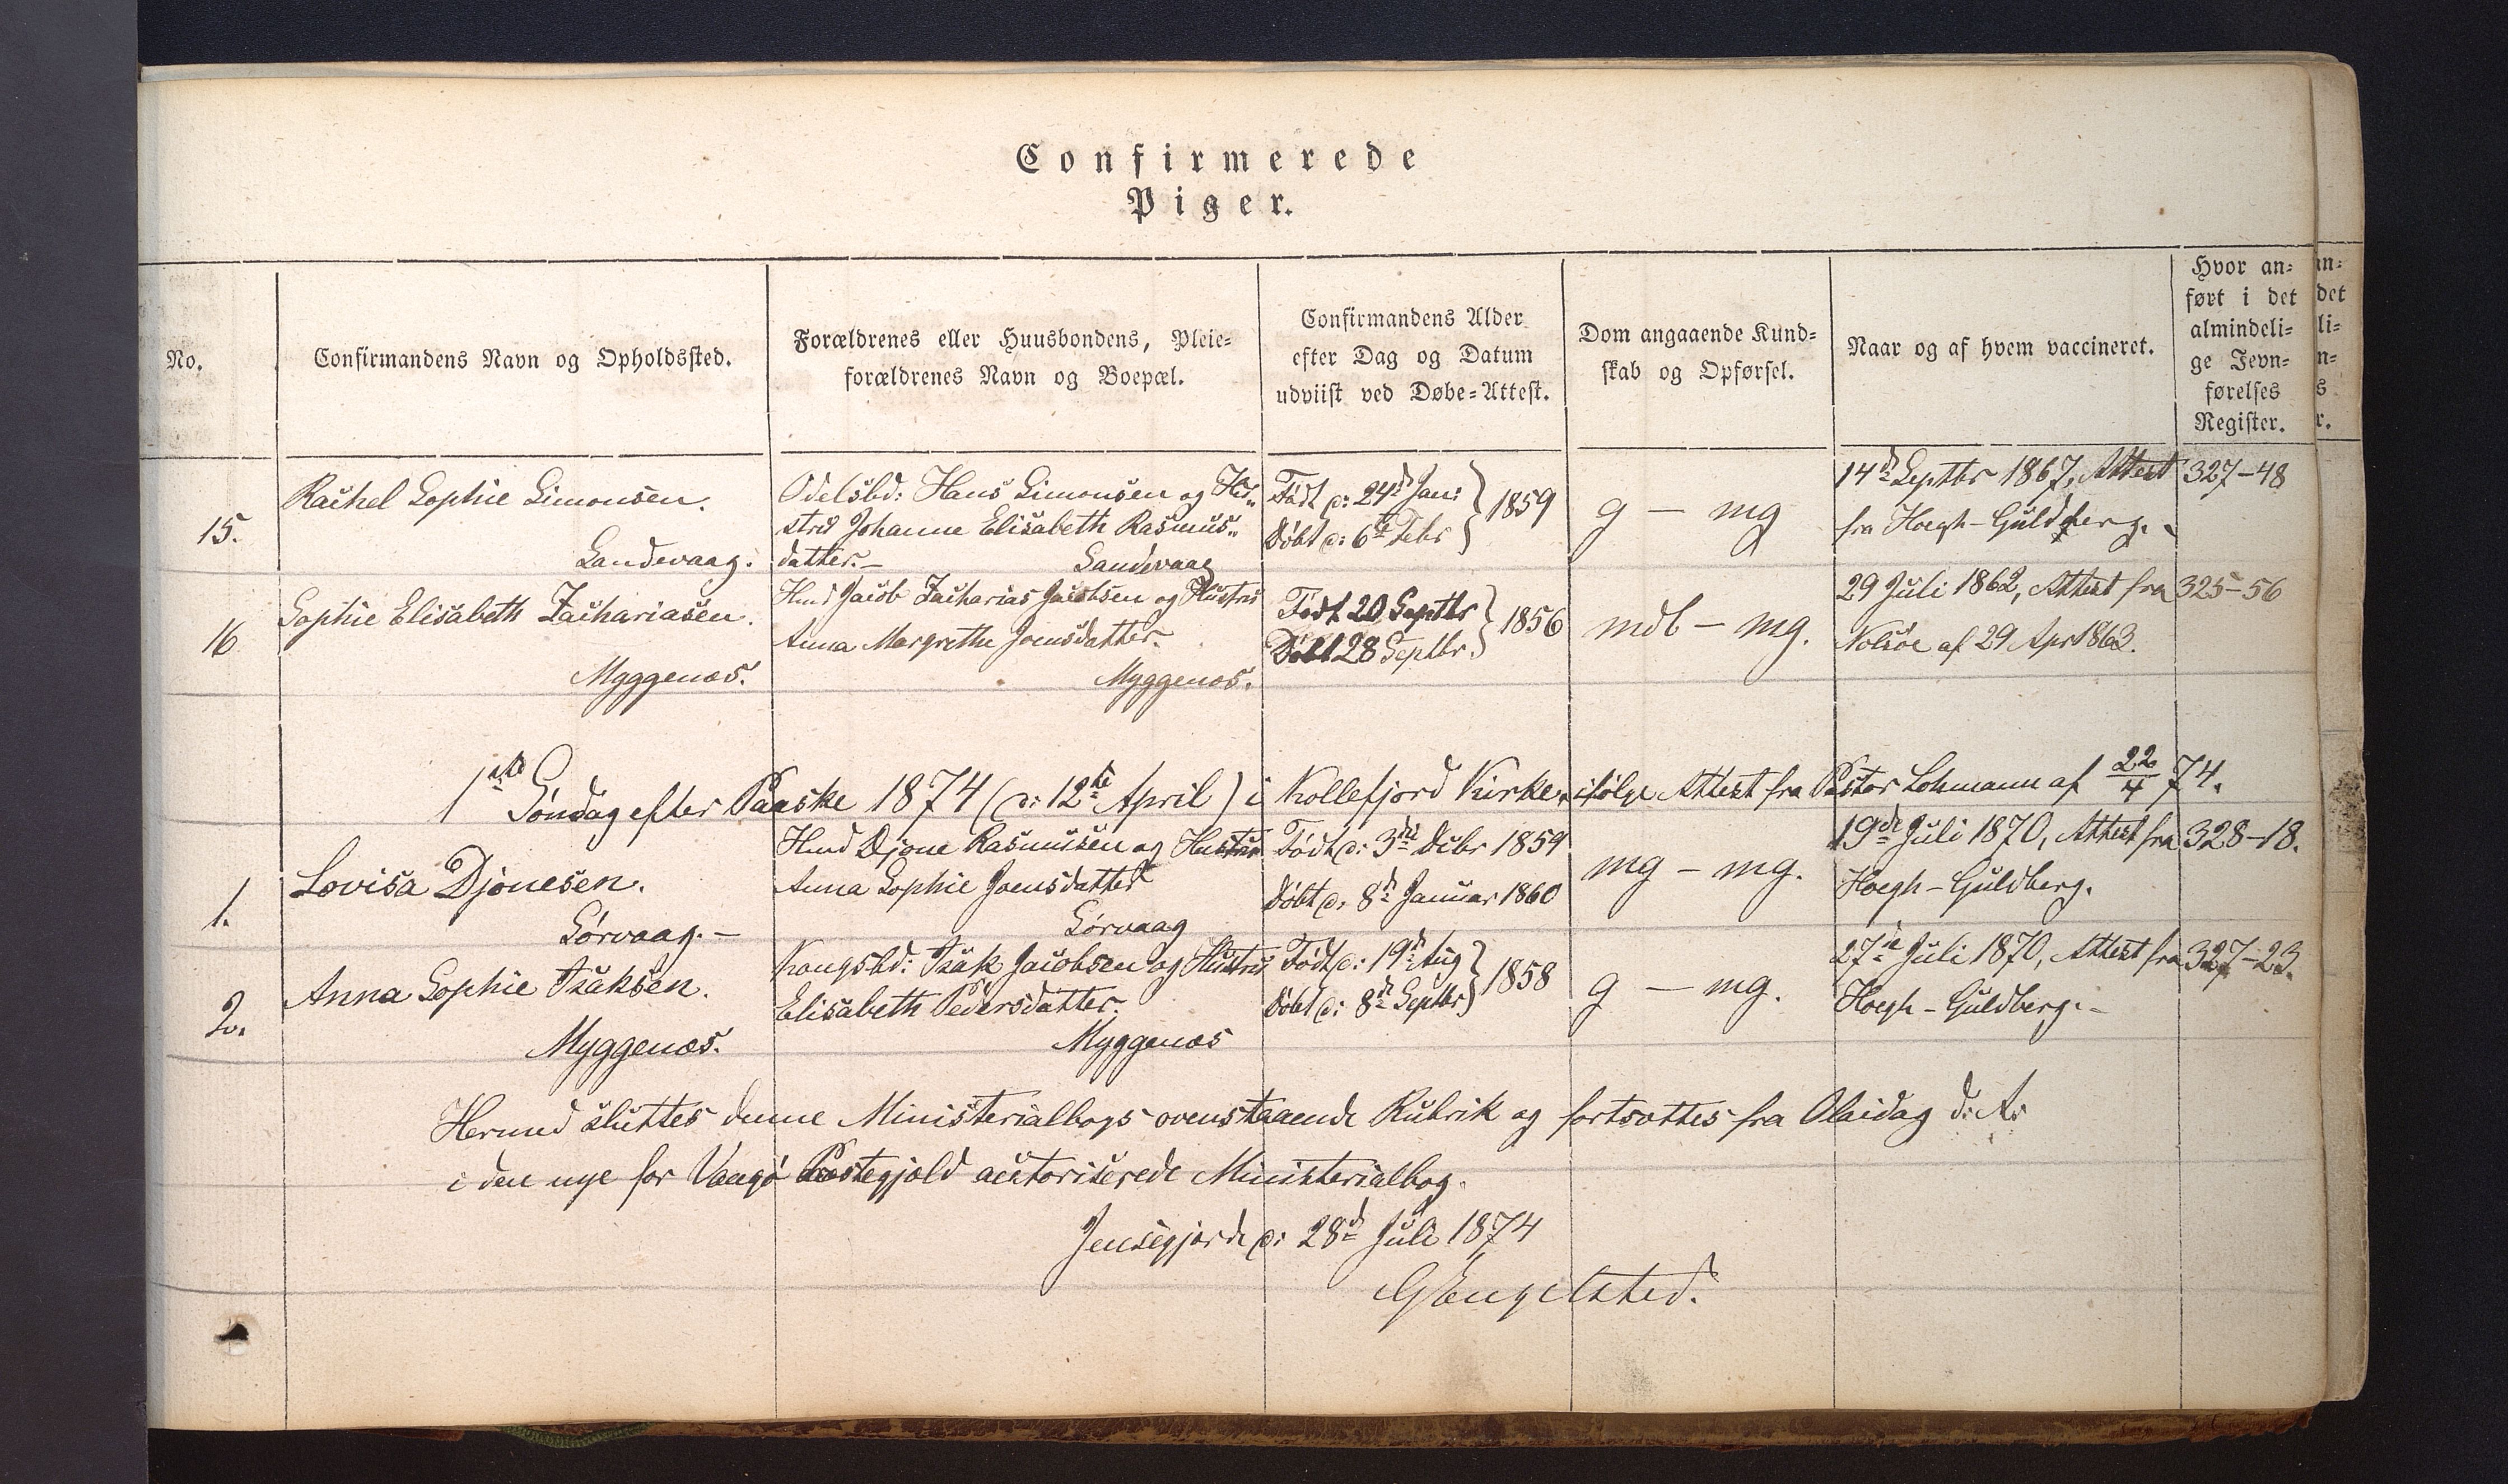 Confirmerede
Piger.
No.
Confirmandens Navn og Opholdssted.
Forældrenes eller Huusbondens, Pleie-
forældrenes Navn og Boepæl.
Confirmandens Alder
efter Dag og Datum
udviist ved Døbe-Attest.
Dom angaaende Kund-
skab og Opførsel.
Naar og af hvem vaccineret.
Hvor an-
ført i det
almindeli-
ge Jevn-
førelses
Register.
15.
Rachel Sophie Simonsen.
Sandevaag.
Odelsbd: Hans Simonsen og Hu-
stru Johanne Elisabeth Rasmus-
datter.—
Sandevaag
Født d: 24d Jan:
Døbt d: 6te Febr
1859
g — mg
14d Septbr 1867, Attest
fra Hoegh-Guldberg.
327-48
16
Sophie Elisabeth Zachariasen.
Myggenæs.
Hmd Jacob Zacharias Jacobsen og Hustru
Anna Margrethe Joensdatter.
Myggenæs.
Født 20 Septbr
Døbt 28 Septbr.
1856
mdl — mg.
29 Juli 1862, Attest fra
Nolsøe af 29 Apr 1863.
325-56
1ste Søndag efter Paaske 1874 (d: 12te April) i Kollefjord Kirke, ifølge Attest fra Pastor Lohmann af 22/4 74.
1.
Lovisa Djonesen.
Sørvaag.—
Hmd Djone Rasmussen og Hustru
Anna Sophie Joensdatter
Sørvaag
Født d: 3die Decbr 1859
Døbt d: 8d Januar 1860
mg — mg.
19de Juli 1870, Attest fra
Hoegh-Guldberg.
328-18.
2.
Anna Sophie Isaksen.
Myggenæs.
Kongsbd: Isak Jacobsen og Hustru
Elisabeth Pedersdatter.
Myggenæs
Født d: 19d Aug
Døbt d: 8d Septbr
1858
g — mg.
27de Juli 1870, Attest fra
Hoegh-Guldberg.-
327-23.
Hermed sluttes denne Ministerialbogs ovenstaaende Rubrik og fortsættes fra Olaidag d: A:
i den nye for Vaagø Præstegjeld autoriserede Ministerialbog.
Jensegjerde d: 28d Juli 1874
GEngelsted.